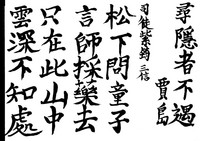 尋隱者不遇
賈島
司徒紫筠 三信
松下問童子
言師採藥去
只在此山中
雲深不知處